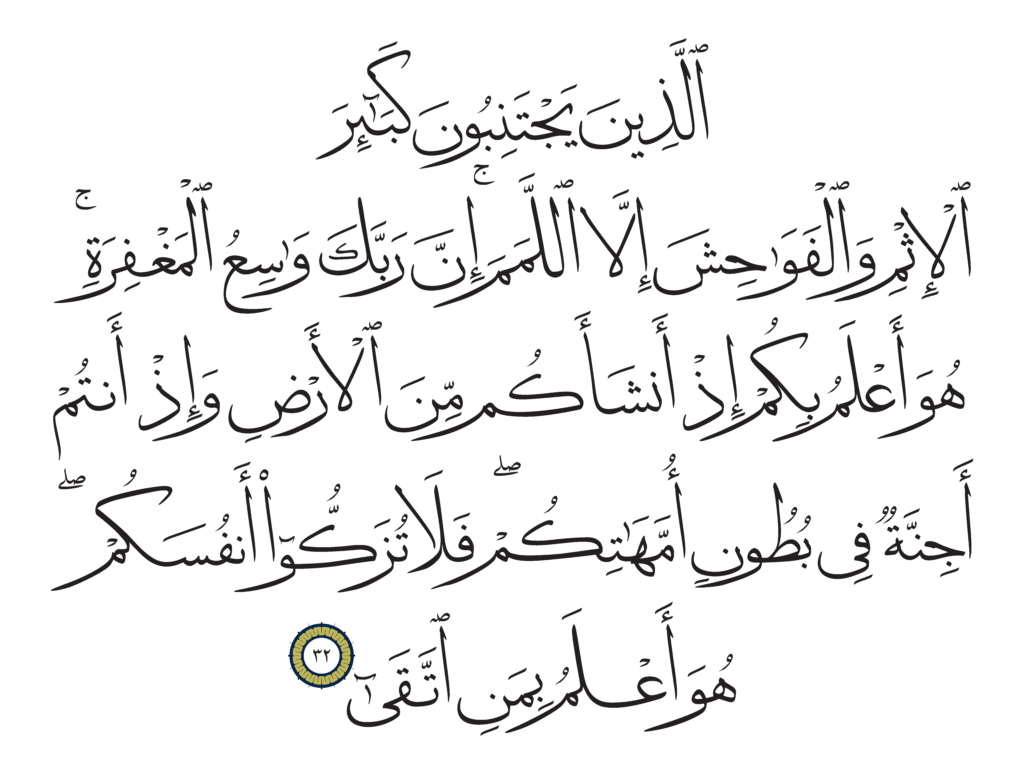 ٱلَّذِينَ يَجْتَنِبُونَ كَبَـٰٓئِرَ
ٱلْإِثْمِ وَٱلْفَوَٰحِشَ إِلَّا ٱللَّمَمَ ۚ إِنَّ رَبَّكَ وَٰسِعُ ٱلْمَغْفِرَةِ ۚ
هُوَ أَعْلَمُ بِكُمْ إِذْ أَنشَأَكُم مِّنَ ٱلْأَرْضِ وَإِذْ أَنتُمْ
أَجِنَّةٌ فِى بُطُونِ أُمَّهَـٰتِكُمْ ۖ فَلَا تُزَكُّوٓا۟ أَنفُسَكُمْ ۖ
هُوَ أَعْلَمُ بِمَنِ ٱتَّقَىٰٓ ٣٢